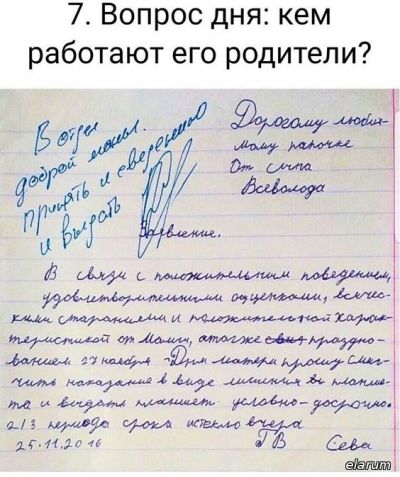 7. Вопрос дня: кем
работают его родители?
В отдел
доброй мамы.
Принять к сведению
и выдать
Дорогому люби-
мому папочке
От сына
Всеволода
Заявление.
В связи с положительным поведением,
удовлетворительными оценками, всячес-
кими стараниями и положительной харак-
теристикой от Мамы, а также празdно-
ванием 27 ноября - Дня матери прошу смяг-
чить наказание в виде лишения планше-
та и выдать планшет условно-досрочно.
2/3 периода срока истекло вчера
25.11.2016
Сева
elarum